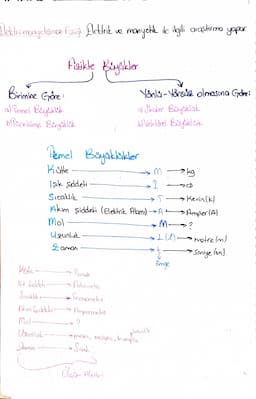 Elektromanyetizma Fiziği: Elektrik ve manyetik ile ilgili araştırma yapar.
Fizikte Büyüklükler
Birimine Göre: Yönlü-Yönsüz olmasına Göre:
a) Temel Büyüklük a) Skaler Büyüklük
b) Türetilmiş Büyüklük b) Vektörel Büyüklük
Temel Büyüklükler
Kütle → m → kg
Işık şiddeti → I → cd
Sıcaklık → T → Kelvin (K)
Akım Şiddeti (Elektrik Akımı) → A → Amper (A)
Mol → M → ?
Uzunluk → L (l) → metre (m)
Zaman → t → Saniye (sn)
Simge
Kütle → Terazi
Işık Şiddeti → Fotometre
Sıcaklık → Termometre
Akım Şiddeti → Ampermetre
Mol → ?
Uzunluk → metre,
Zaman → Saat
Ölçüm Aletleri